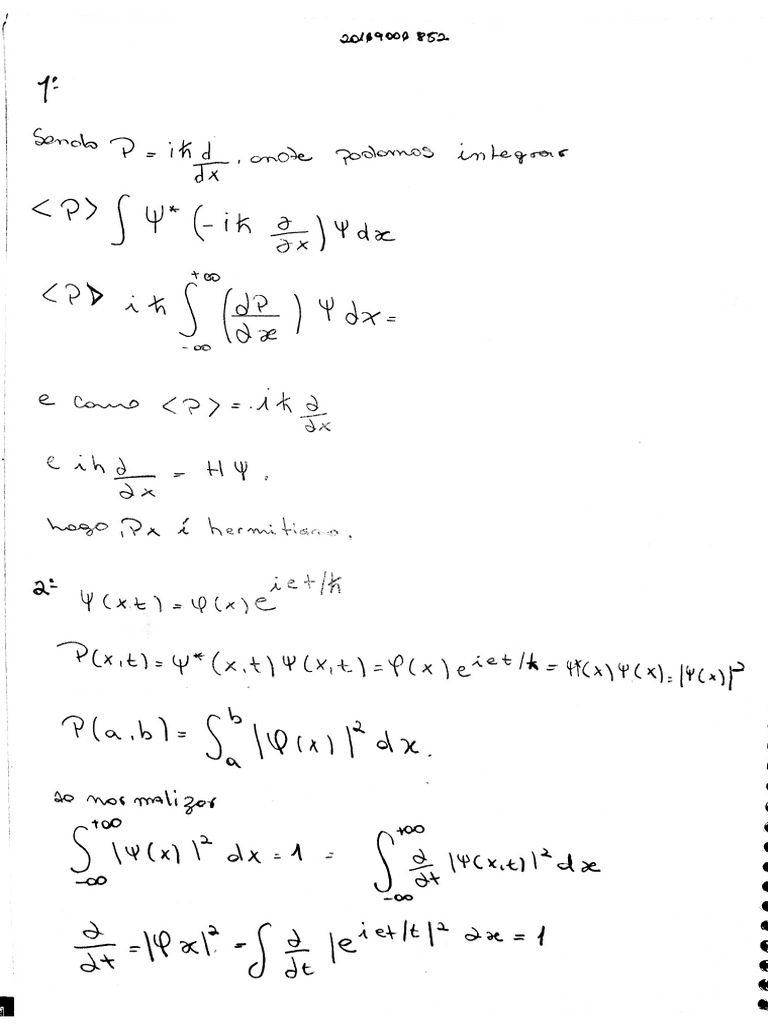 20189001852
1ª
Sendo P = iħ d/dx, onde podemos integrar
<P> ∫ Ψ* (-iħ ∂/∂x) Ψ dx
<P> iħ ∫_{-∞}^{+∞} (dP/dx) Ψ dx =
e como <P> = -iħ ∂/∂x
e iħ ∂/∂x = HΨ.
Logo, Px é hermitiano.
2ª Ψ(x,t) = φ(x) e^{iet/ħ}
P(x,t) = Ψ*(x,t) Ψ(x,t) = φ(x) e^{iet/ħ} = Ψ*(x) Ψ(x) = |Ψ(x)|²
P(a,b) = ∫_a^b |φ(x)|² dx.
ao normalizar
∫_{-∞}^{+∞} |Ψ(x)|² dx = 1 = ∫_{-∞}^{+∞} ∂/∂t |Ψ(x,t)|² dx
∂/∂t = |φx|² = ∫ ∂/∂t |e^{iet/t}|² dx = 1